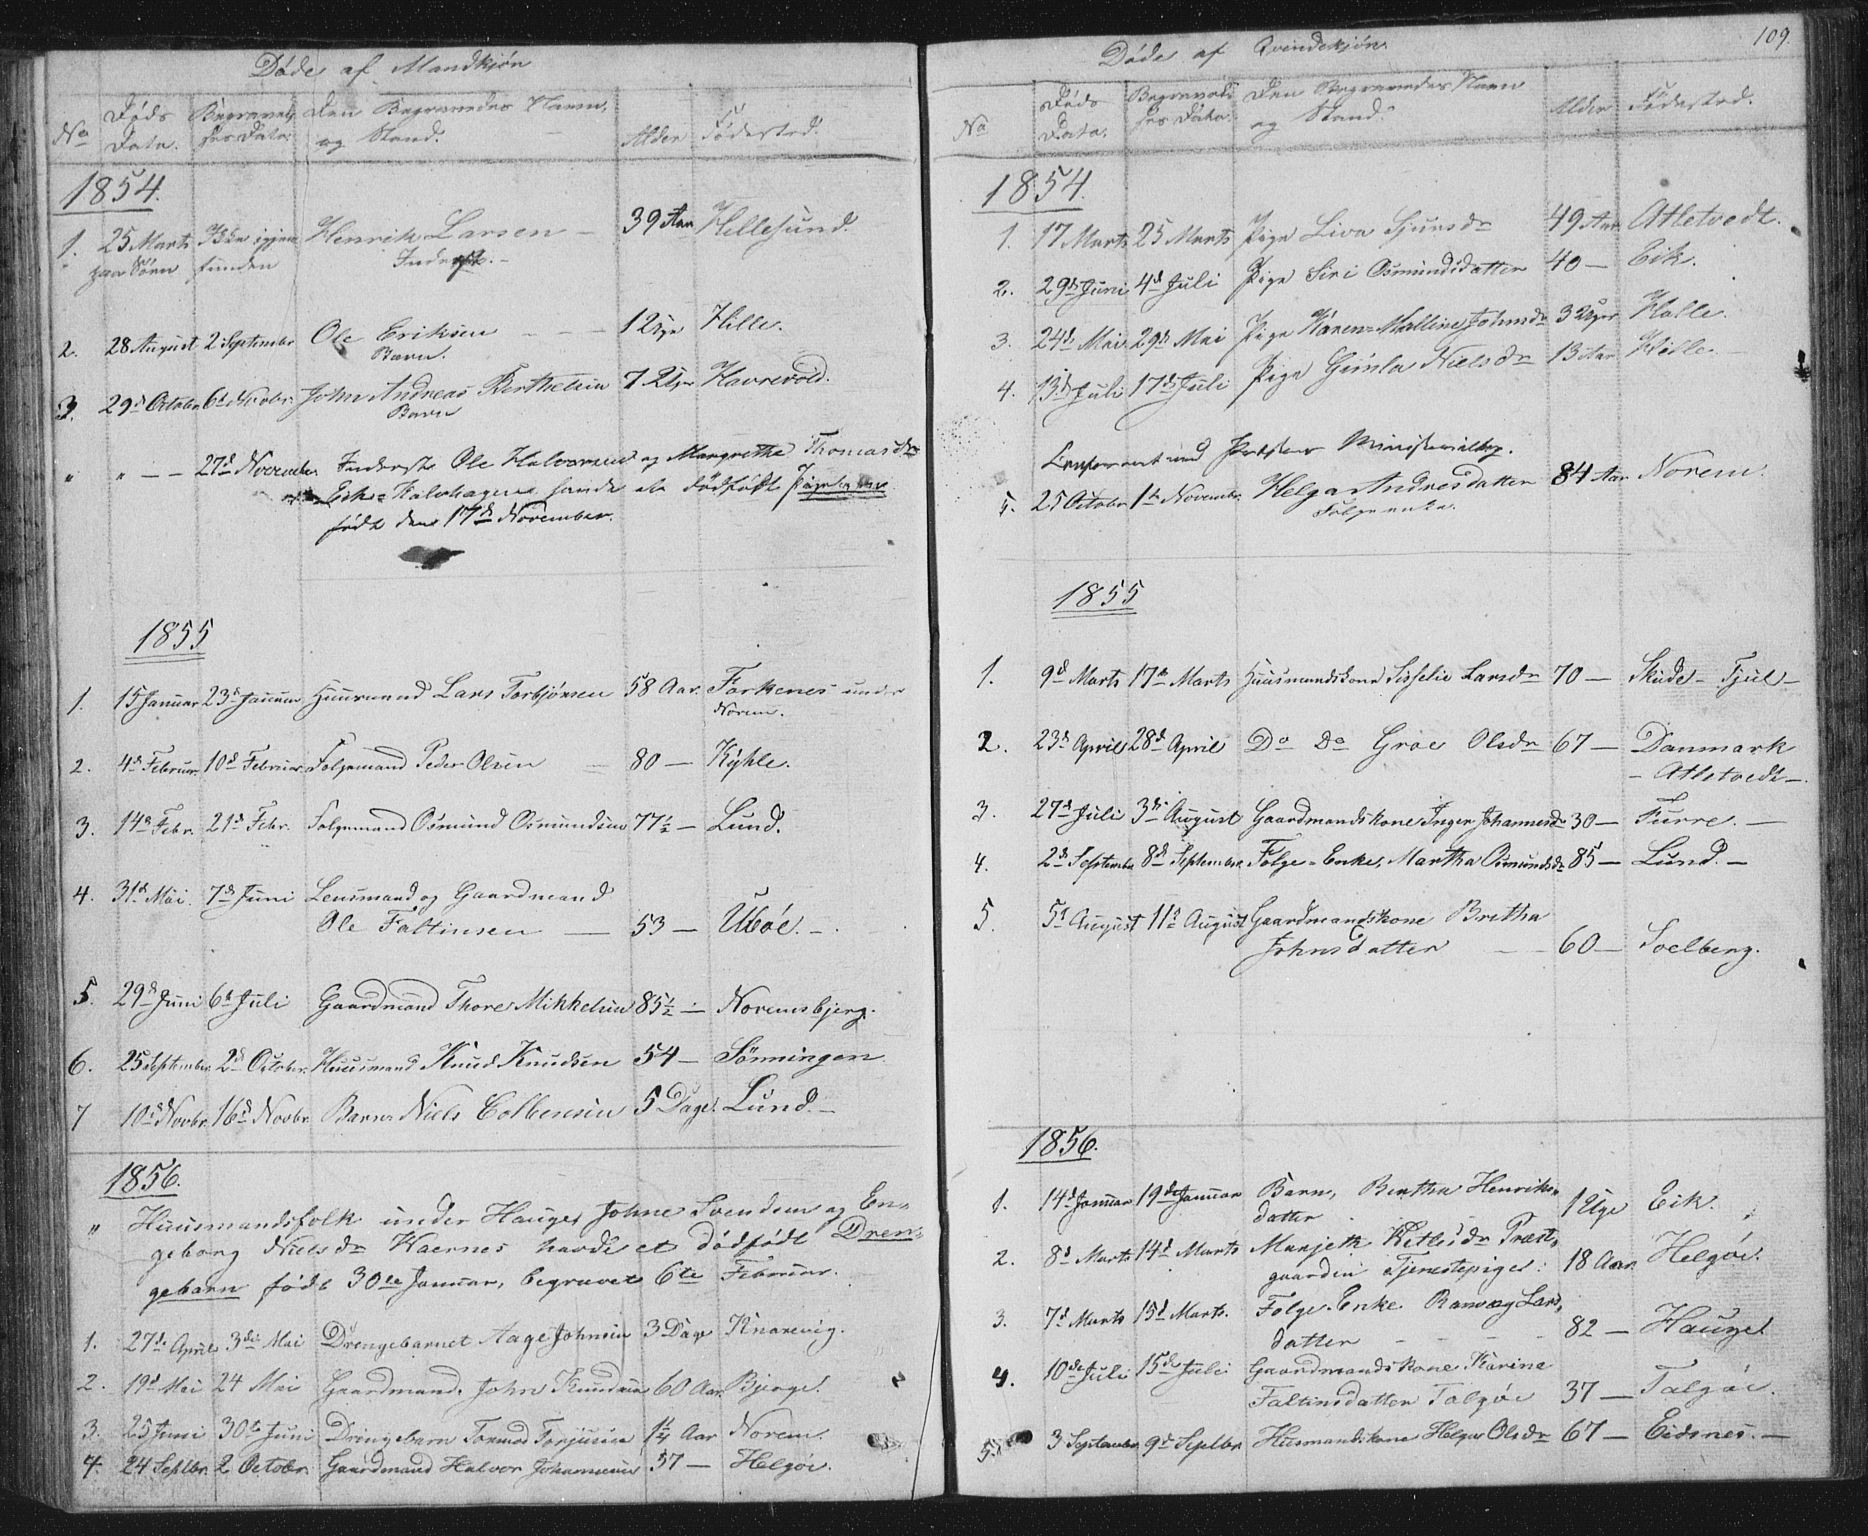 Døde af Mandkjøn
No
Døds Data.
Begravelses Data.
Den Begravedes Navn, og Stand.
Alder
Fødested.
1854.
1. 25 Marts Ikke igjen Henrik Larsen – 39 Aar Hillesund.
paa Søen funden
2. 28 August 2 September Ole Eriksen – – 1 Uge Hille.
Barn.
3. 29d October 6d Novbr. John Andreas Berthelsen 7 Uger Havrevold.
Barn
" " – – 27d November Inderste Ole Halvorsen og Margrethe Thomasdr
Eik havde et dødfødt Pigebarn
født den 17d November.
1855
1. 15 Januar 23d Januar Huusmand Lars Torbjørnsen 58 Aar. Forkenes under
Norem.
2. 4d Februar 10d Februar Folgemand Peder Olsen – 80 – Kyhle.
3. 14d Febr. 21d Febr. Folgemand Osmund Osmundsen 77½ – Lund.
4. 31d Mai. 7d Juni Lensmand og Gaardmand
Ole Faltinsen – 53 – Ubøe. –
5. 29d Juni 6d Juli Gaardmand Thore Mikkelsen 85½ – Noremsbjerg.
6. 25 September 2d October. Huusmand Knud Knudsen 54 – Sønningen
7 10d Novbr. 16d Novbr Barn Niels Colbensen 5 Dage. Lund. –
1856.
" Huusmandsfolk under Hauge, Johne Svendsen og En-
geborg Nielsdr Waernes havde et dødfødt Dren-
gebarn født 30te Januar, begravet 6te Februar.
1. 27d April 3die Mai Drengebarnet Aage Johnsen 3 Dage Knarevig.
2. 19d Mai 24 Mai Gaardmand. John Knudsen 60 Aar. Bjerge.
3. 25 Juni 30te Juni Drengebarn Tormod Torjusen 1¼ Aar Norem.
4. 24 Septbr. 2 Octobr. Gaardmand Halvor Johannesen 57 – Helgøe.
109.
Døde af Qvindekjøn.
No
Døds Data.
Begravelses Data.
Den Begravedes Navn og Stand.
Alder
Fødested.
1854.
1. 17 Marts 25 Marts Pige Liva Sjursdr 49 Aar Atletvedt.
2. 29d Juni 4d Juli Pige Siri Osmundsdatter 40 – Eik.
3. 24d Mai 29d Mai Pige Karen Malline Johnsdr 3 Uger Halle.
4. 13d Juli 17d Juli Pige Gunla Nielsdr 13 Aar
Confereret med Præstens Ministerialbog.
5. 25 October 1te Novembr. Helga Andresdatter 84 Aar Norem.
Folgeenke.
1855
1. 9d Marts 17de Marts Huusmandskone Sisselie Larsdr 70 – Skude – Fjul –
2. 23d April 28d April Do Do Groe Olsdr 67 – Danmark
– Atletvedt –.
3. 27d Juli 3die August Gaardmandskone Inger Johannesdr 30 – Furre. –
4. 2d September 8d September Folge-Enke, Martha Osmundsdr 85 – Lund. –
5. 5d August 11d August Gaardmandskone Britha
Johnsdatter – – 60 – Soelberg.
1856.
1. 14d Januar 19de Januar Barn, Bertha Henriks-
datter 1 Uge Eik.
2. 8d Marts 14d Marts Marjeth Ketlsdr Præst-
gaarden Tjenestepige: 18 Aar. Helgøe.
3. 7d Marts 15d Marts. Folge-Enke Ranvæg Lars-
datter – – – – 82 – Hauge
4. 10de Juli 15de Juli Gaardmandskone Karine
Faltinsdatter Talgøe 37 – Talgøe.
5. 3 September 9d Septbr Husmandskone Helga Olsdr 67 – Eidsnes. –